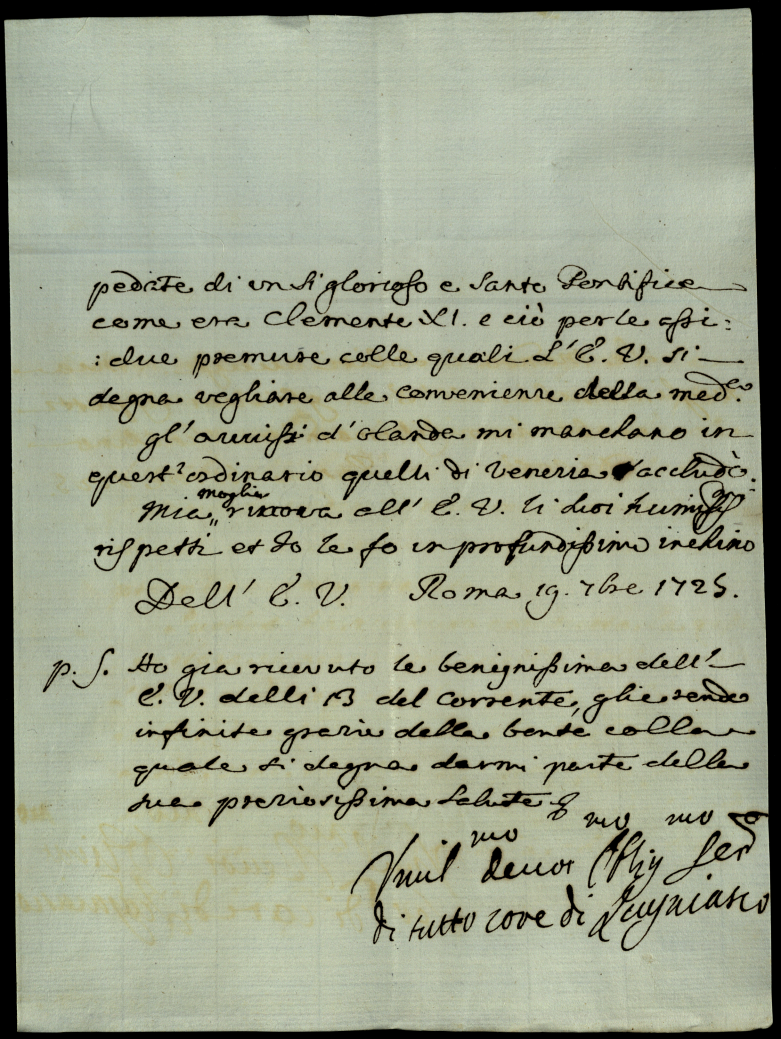 pedate di un si glorioso e santo Pontifice
come era Clemente XI. e ciò per le assi:
:due premure colle quali L'E. V. si
degna vegliare alle convenienze della med.ma
gl'auuisi d'olanda mi manchano in
quest'ordinario quelli di venezia accludo.
Mia moglie rinova all'E. V. li suoi humiss.mi
rispetti et Io le fo un profundissimo inchino
Dell'E. V. Roma 19. 7bre 1725.
p. S. Ho gia ricevuto le benignissima dell'
E. V. delli 13 del corrente, glie rendo
infinite grazie della bontè colla
quale si degna darmi parte della
sua preziosissima salute
Umil mo devot mo Oblig mo Ser
di tutto core di